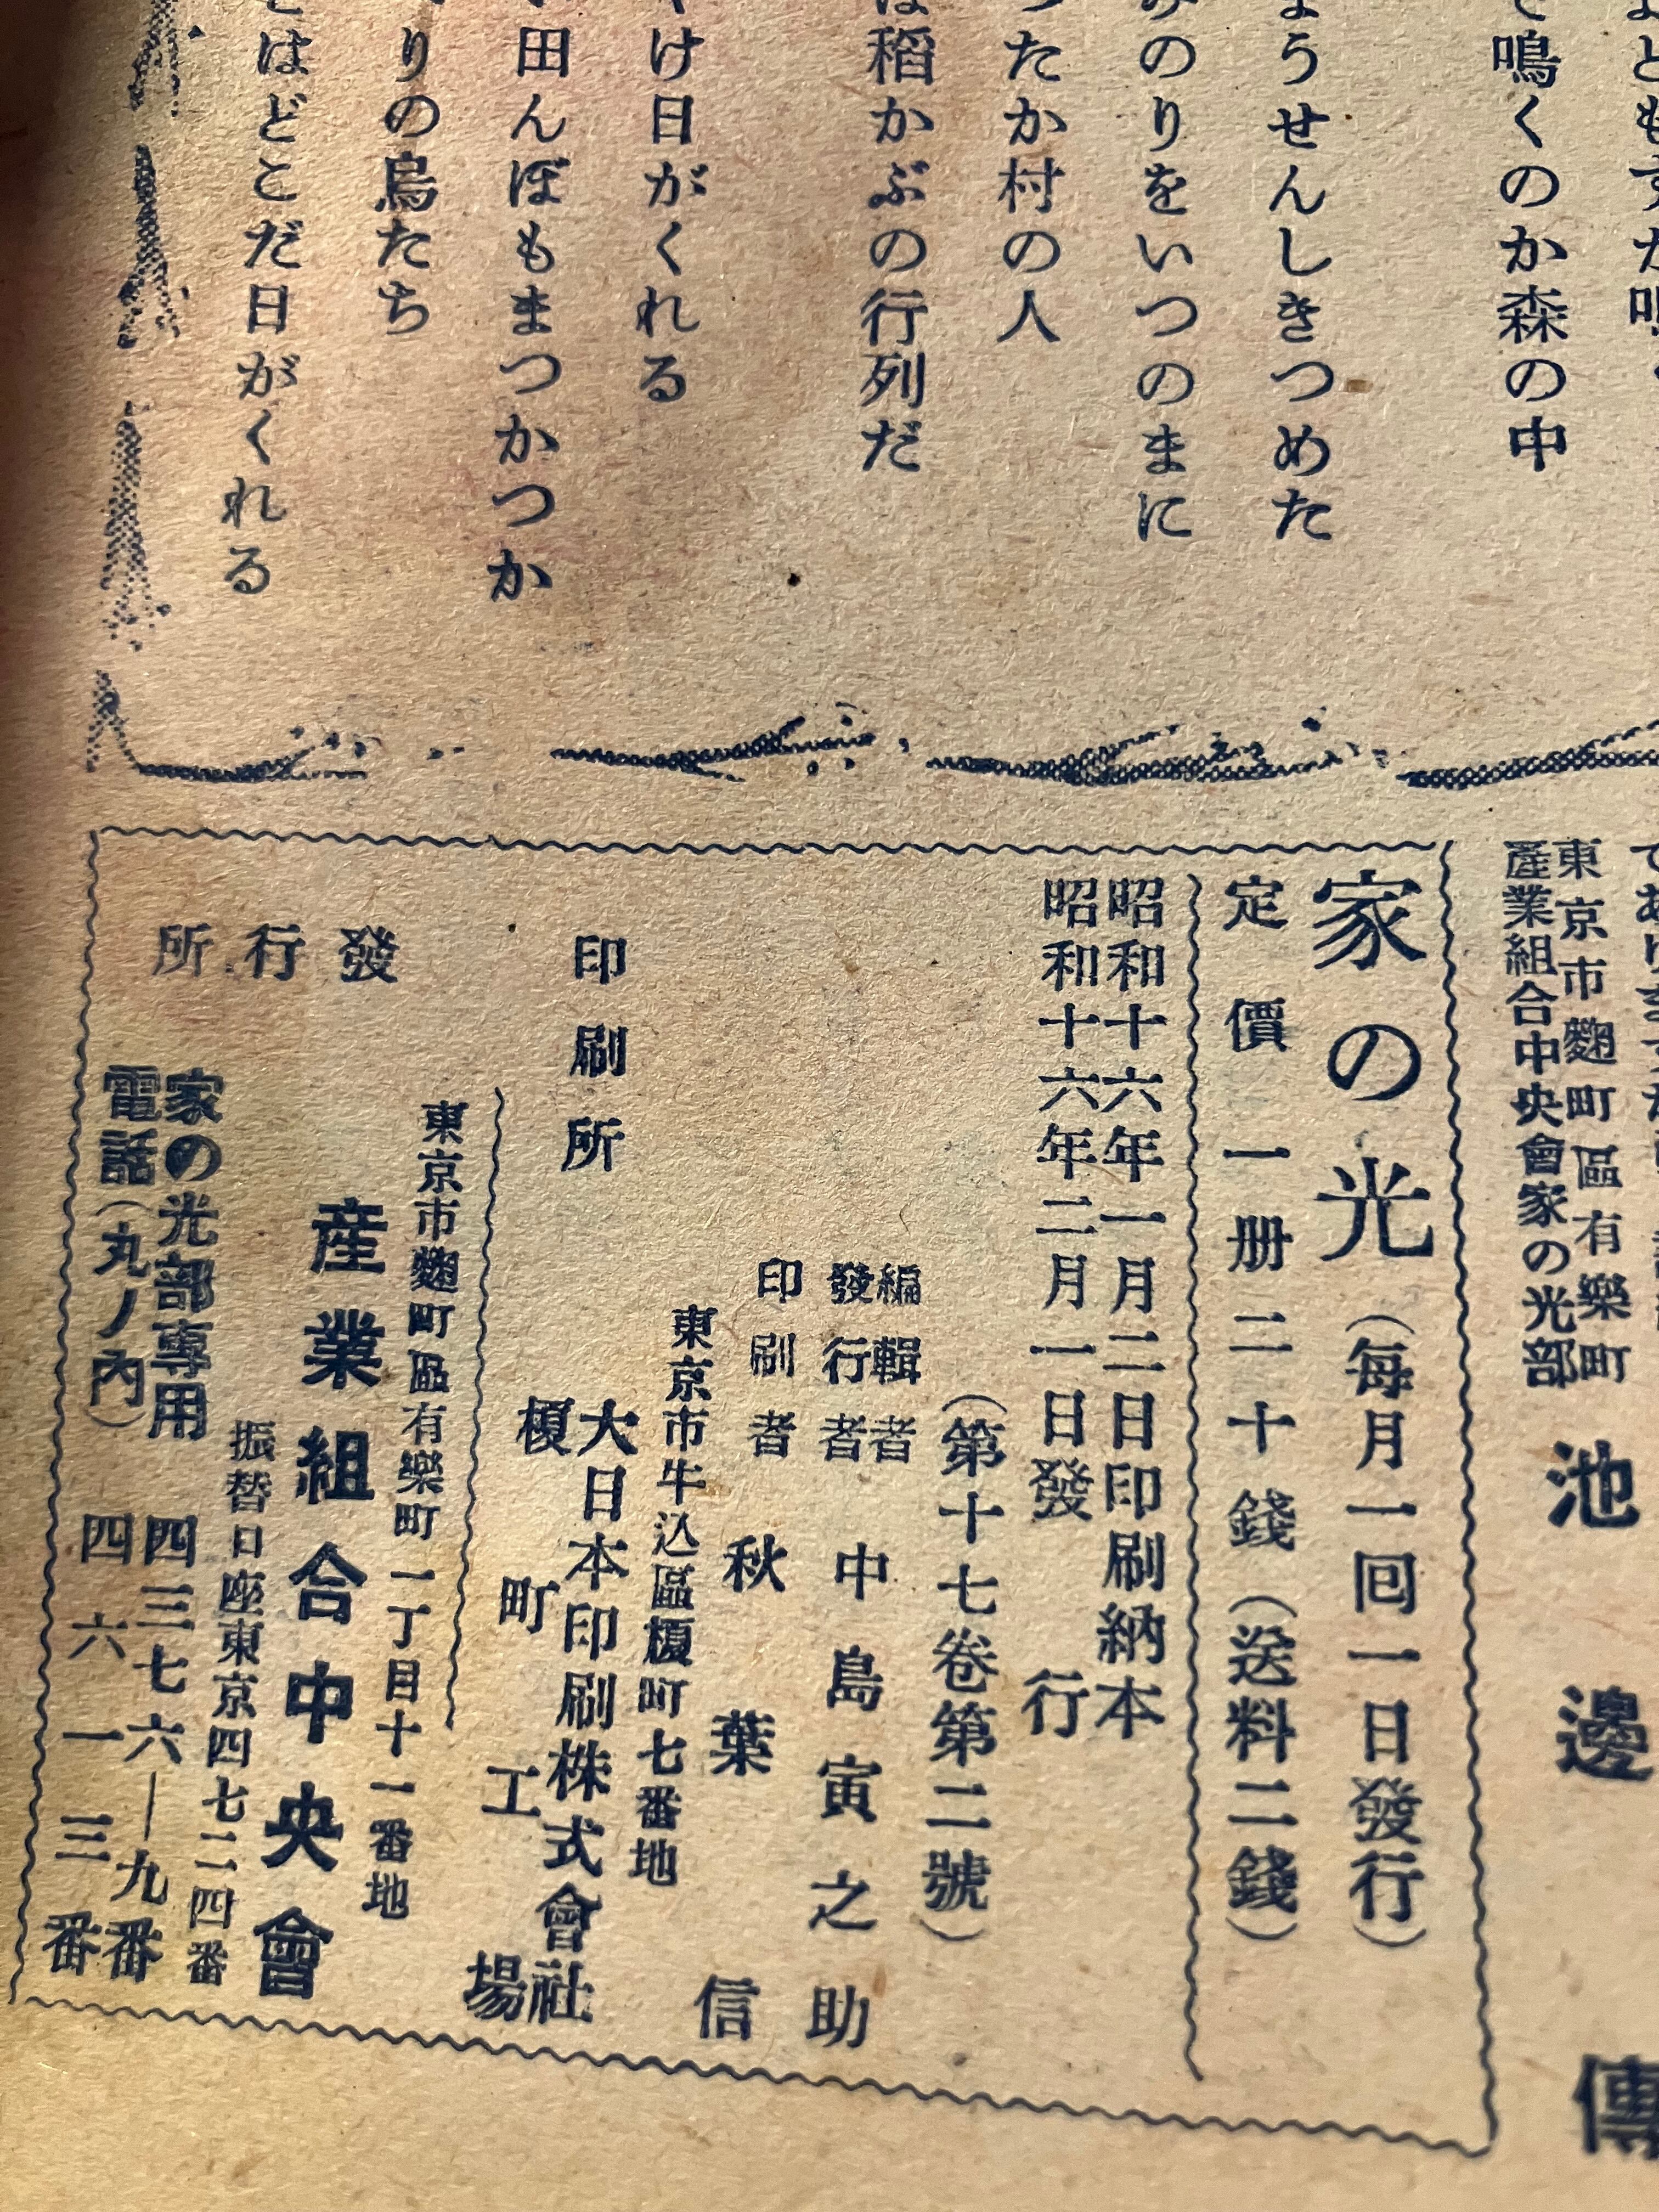 ともす
て鳴くのか森の中
うせんしきつめた
のりをいつのまに
つたか村の人
は稻かぶの行列だ
け日がくれる
田んぼもまつかつか
りの鳥たち
はどこだ日がくれる
東京市麴町區有樂町
產業組合中央會家の光部
池邊傳
家の光(每月一回一日發行)
定價一册二十錢(送料二錢)
昭和十六年一月二日印刷納本
昭和十六年二月一日發行
(第十七卷第二號)
編輯者
發行者 中島寅之助
印刷者 秋葉信
東京市牛込區榎町七番地
印刷所 大日本印刷株式會社
榎町工場
東京市麴町區有樂町一丁目十一番地
發行所 産業組合中央會
振替口座東京四七二四番
家の光部專用 四三七六―九番
電話(丸ノ內) 四六一三番